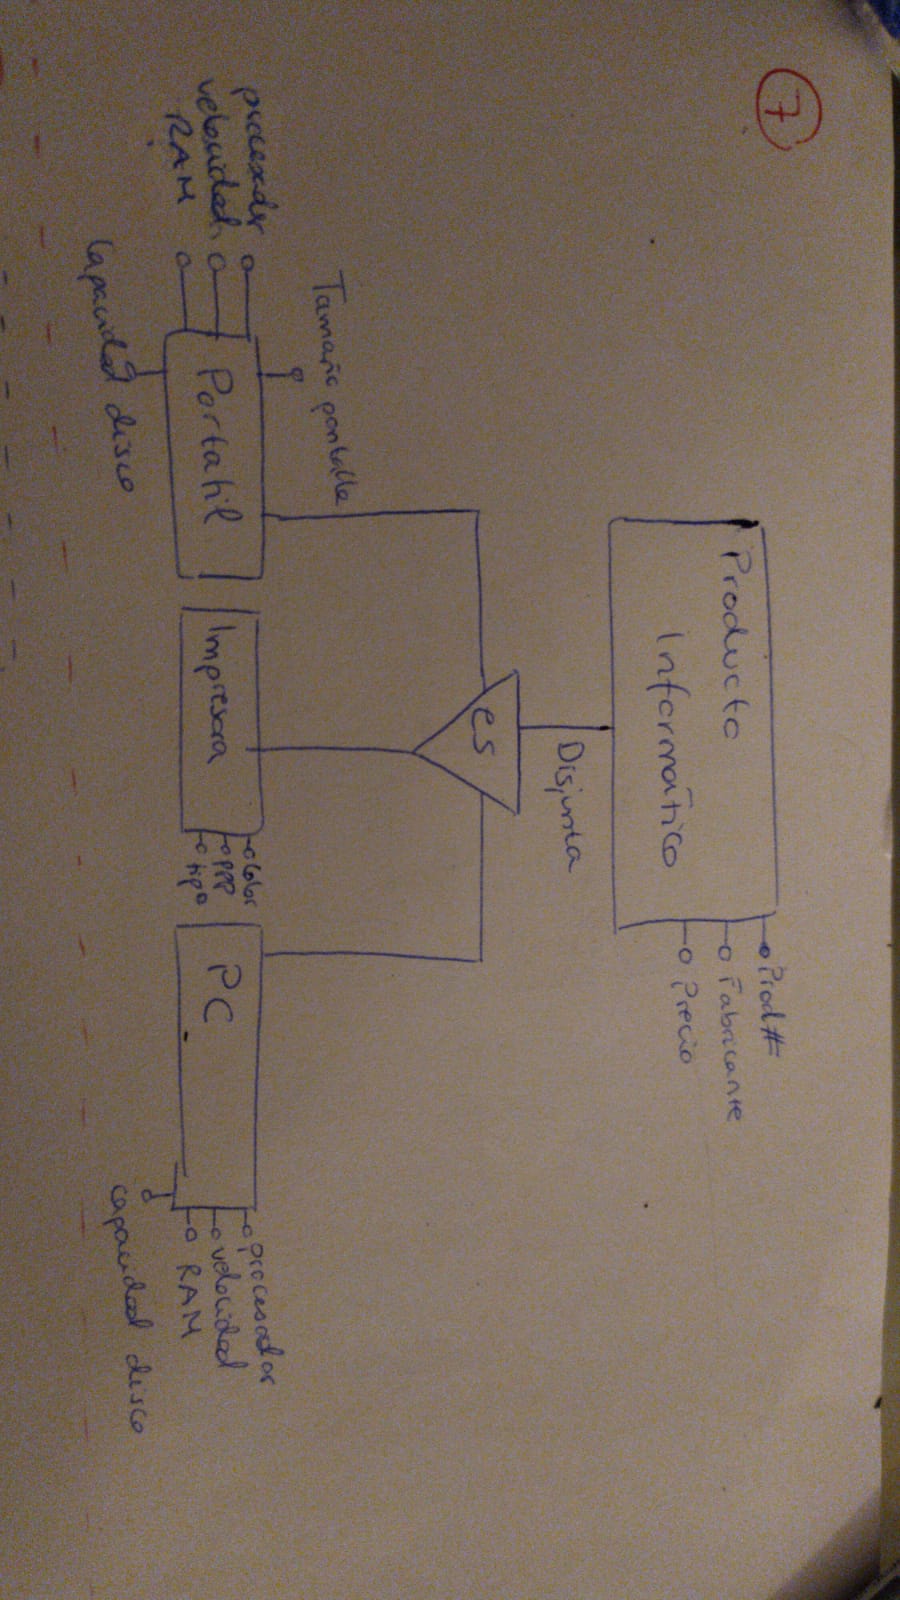 7
Producto
Informático
Prod#
Fabricante
Precio
Disjunta
es
Tamaño pantalla
procesador
velocidad
RAM
Portatil
Capacidad disco
Impresora
Color
PPP
tipo
PC
procesador
velocidad
RAM
capacidad disco